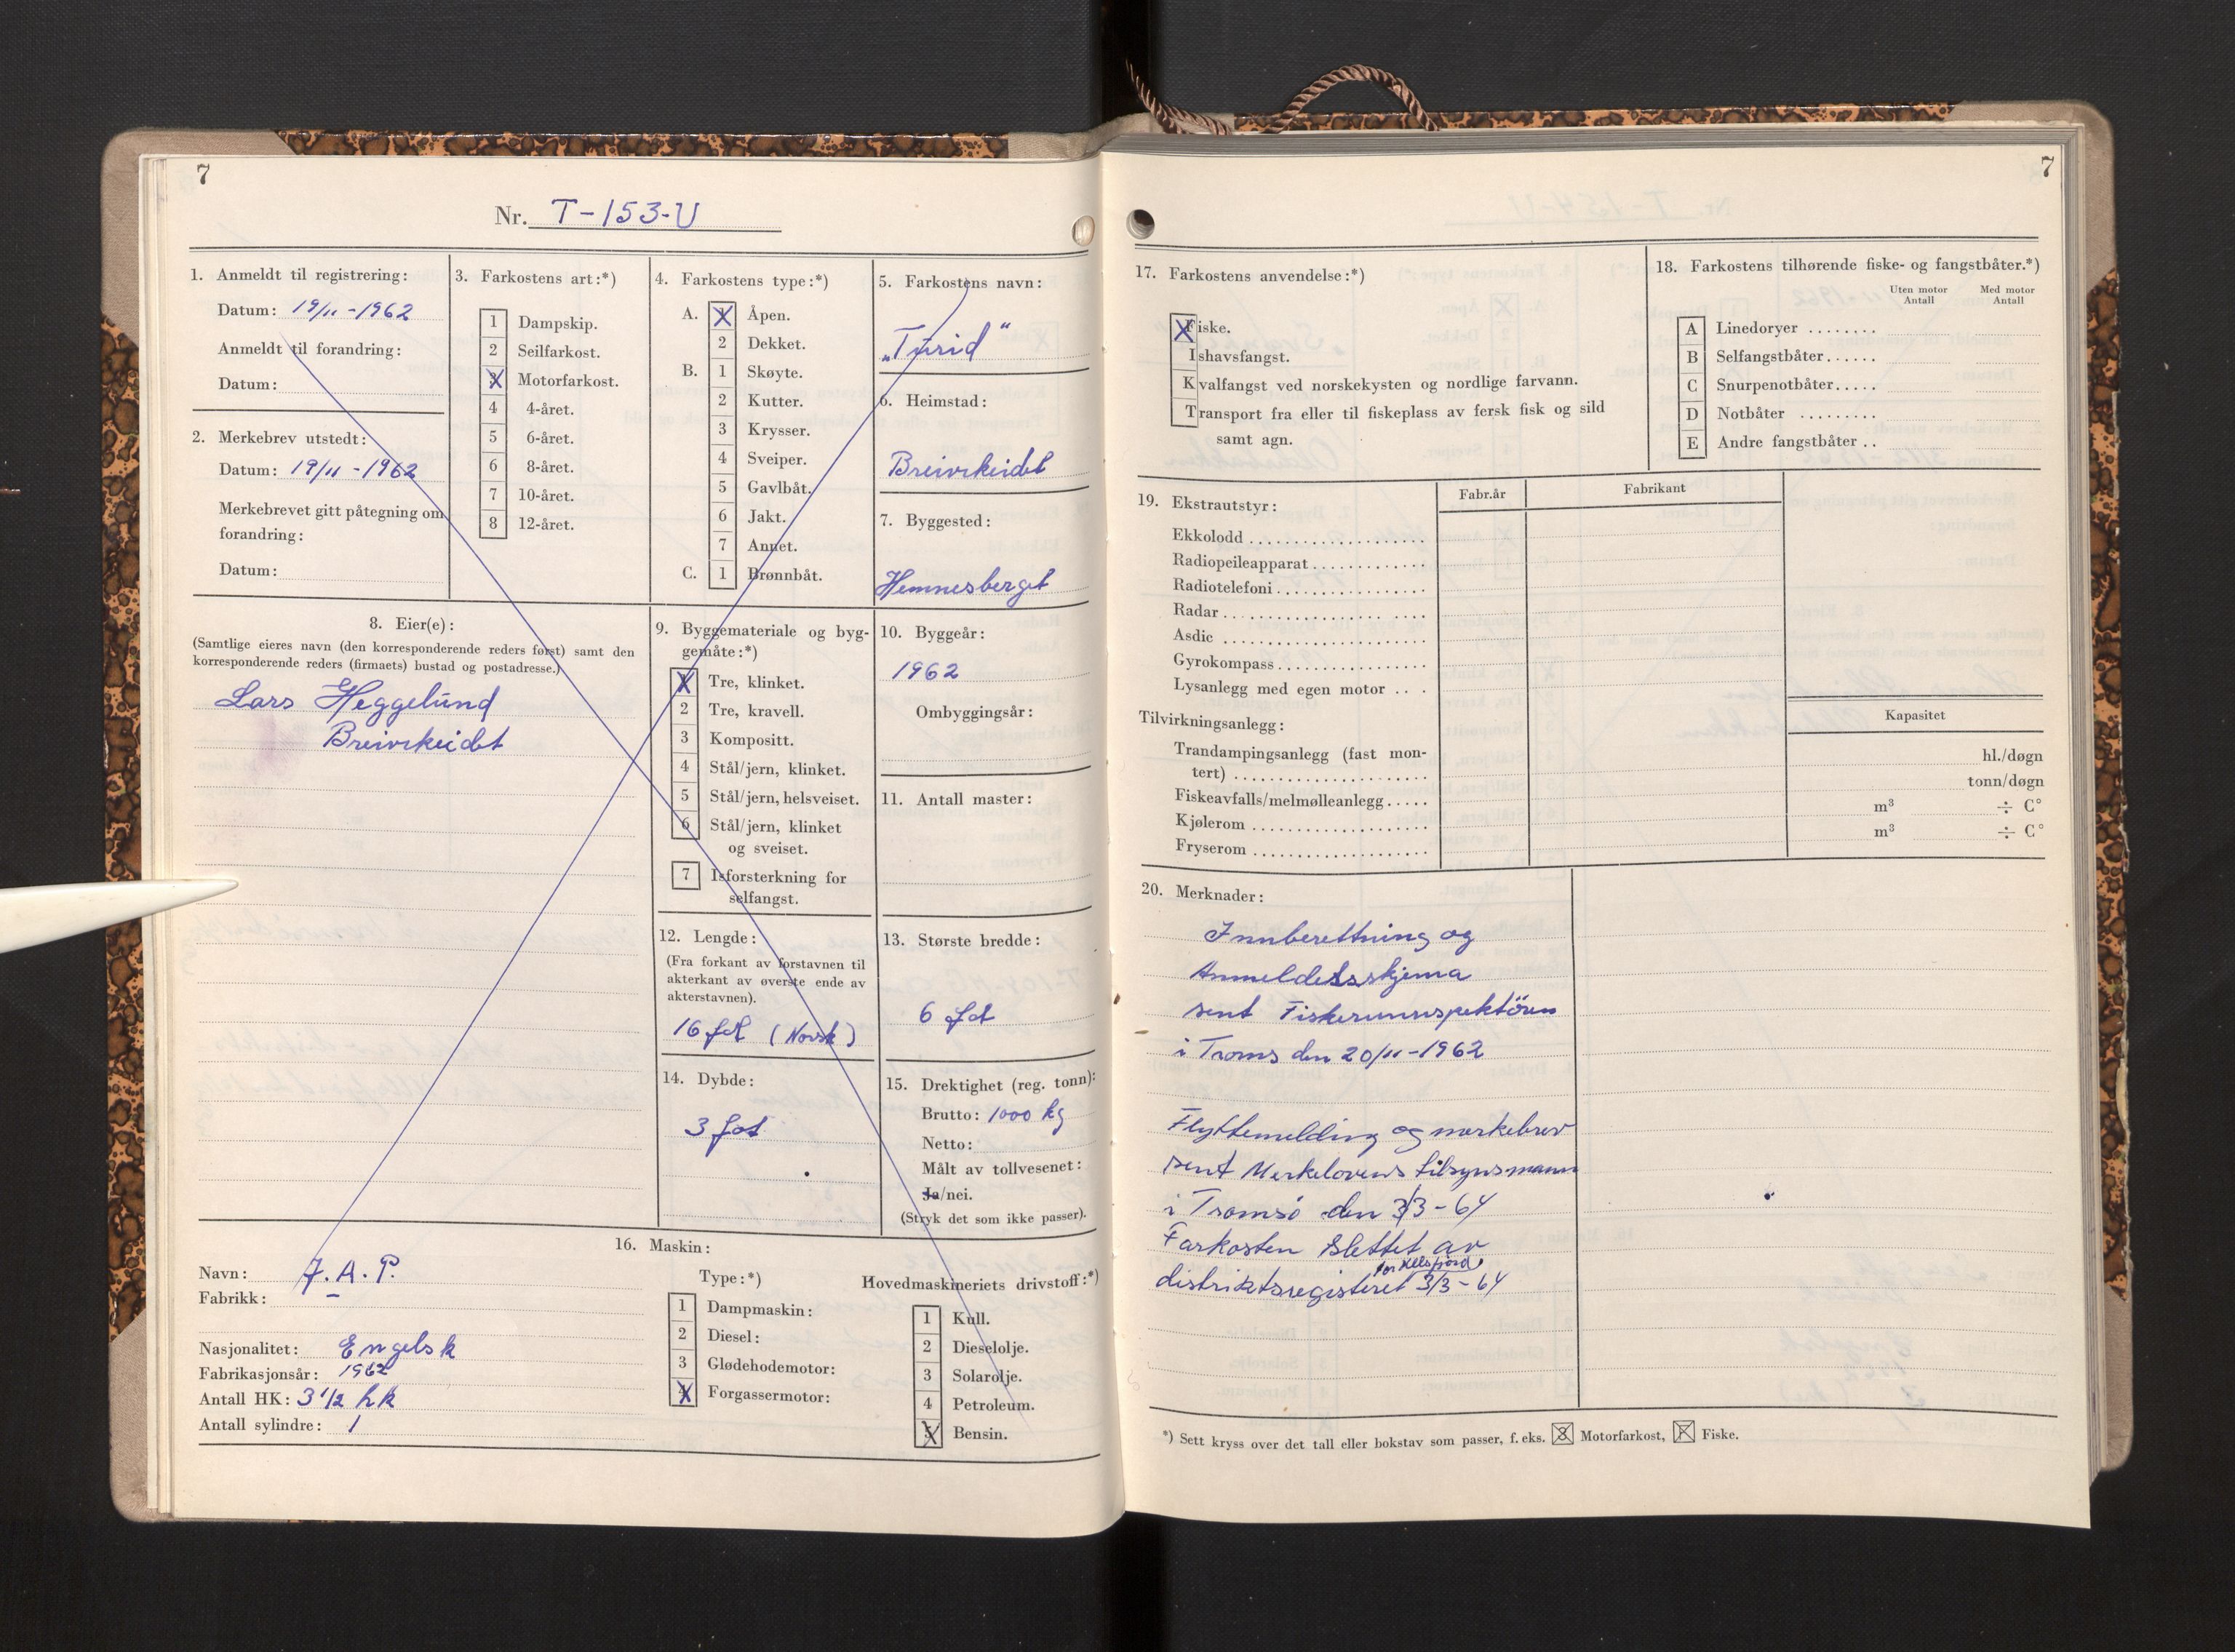 7
Nr. T-153-U
1. Anmeldt til registrering:
Datum: 19/11-1962
Anmeldt til forandring:
Datum:
2. Merkebrev utstedt:
Datum: 19/11-1962
Merkebrevet gitt påtegning om
forandring:
Datum:
3. Farkostens art:*)
1 Dampskip.
2 Seilfarkost.
X Motorfarkost.
4 4-året.
5 6-året.
6 8-året.
7 10-året.
8 12-året.
4. Farkostens type:*)
A. X Åpen.
2 Dekket.
B. 1 Skøyte.
2 Kutter.
3 Krysser.
4 Sveiper.
5 Gavlbåt.
6 Jakt.
7 Annet.
C. 1 Brønnbåt.
5. Farkostens navn:
„Turid"
6. Heimstad:
Breivikeidet
7. Byggested:
Hemnesberget
8. Eier(e):
(Samtlige eieres navn (den korresponderende reders først) samt den
korresponderende reders (firmaets) bustad og postadresse.)
Lars Heggelund
Breivikeidet
9. Byggemateriale og byg-
gemåte:*)
X Tre, klinket.
2 Tre, kravell.
3 Kompositt.
4 Stål/jern, klinket.
5 Stål/jern, helsveiset.
6 Stål/jern, klinket
og sveiset.
7 Isforsterkning for
selfangst.
10. Byggeår:
1962
Ombyggingsår:
11. Antall master:
12. Lengde:
(Fra forkant av forstavnen til
akterkant av øverste ende av
akterstavnen).
16 fot (Norsk)
13. Største bredde:
6 fot
14. Dybde:
3 fot
15. Drektighet (reg. tonn):
Brutto: 1000 kg
Netto:
Målt av tollvesenet:
Ja/nei.
(Stryk det som ikke passer).
16. Maskin:
Navn: J.A.P.
Fabrikk:
Nasjonalitet: Engelsk
Fabrikasjonsår: 1962
Antall HK: 3 1/2 hk
Antall sylindre: 1
Type:*)
1 Dampmaskin:
2 Diesel:
3 Glødehodemotor:
X Forgassermotor:
Hovedmaskineriets drivstoff:*)
1 Kull.
2 Dieselolje.
3 Solarolje.
4 Petroleum.
5 Bensin.
7
17. Farkostens anvendelse:*)
Fiske.
Ishavsfangst.
Kvalfangst ved norskekysten og nordlige farvann.
Transport fra eller til fiskeplass av fersk fisk og sild
samt agn.
18. Farkostens tilhørende fiske- og fangstbåter.*)
Uten motor Med motor
Antall Antall
A Linedoryer ........
B Selfangstbåter......
C Snurpenotbåter.....
D Notbåter .........
E Andre fangstbåter ..
19. Ekstrautstyr:
Fabr.år Fabrikant
Ekkolodd ....................
Radiopeileapparat .............
Radiotelefoni .................
Radar .......................
Asdic .......................
Gyrokompass .................
Lysanlegg med egen motor ...
Tilvirkningsanlegg:
Kapasitet
Trandampingsanlegg (fast mon-
tert) ...................... hl./døgn
Fiskeavfalls/melmølleanlegg..... tonn/døgn
Kjølerom .................... m³ ÷ C°
Fryserom .................... m³ ÷ C°
20. Merknader:
Innberettning og
Anmeldelsskjema
sent Fiskeriinnspektören
i Troms den 20/11-1962
Flyttemelding og merkebrev
sent Merkelovens tilsynsmann
i Tromsö den 3/3-64
Farkosten slettet av
for Ullsfjord
distriktsregisteret 3/3-64
*) Sett kryss over det tall eller bokstav som passer, f. eks. 3 Motorfarkost, F Fiske.